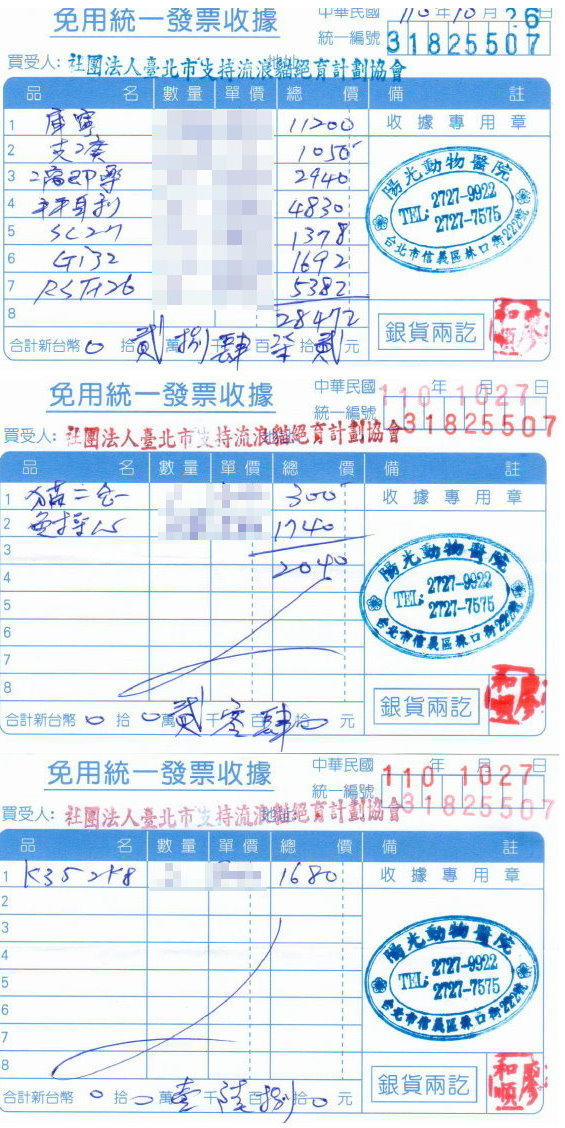 免用統一發票收據
中華民國 110 年 10 月 26 日
統一編號 31825507
買受人: 社團法人臺北市支持流浪貓絕育計劃協會
品名 數量 單價 總價 備註
1 11200 收據專用章
2 1050
3 2940
4 4830
5 SC27 1378
6 Gi32 1692
7 5382
8 28472
陽光動物醫院
TEL: 2727-9922
2727-7575
台北市信義區林口街222號
銀貨兩訖
合計新台幣 0 拾 貳 萬 捌 千 肆 百 柒 拾 貳 元
免用統一發票收據
中華民國 110 年 10 月 27 日
統一編號 31825507
買受人: 社團法人臺北市支持流浪貓絕育計劃協會
品名 數量 單價 總價 備註
1 貓二合一 300 收據專用章
2 1740
3 2040
4
5
6
7
8
陽光動物醫院
TEL: 2727-9922
2727-7575
台北市信義區林口街222號
銀貨兩訖
廖和順
合計新台幣 0 拾 0 萬 貳 千 零 百 肆 拾 0 元
免用統一發票收據
中華民國 110 年 10 月 27 日
統一編號 31825507
買受人: 社團法人臺北市支持流浪貓絕育計劃協會
品名 數量 單價 總價 備註
1 K35 2K8 1680 收據專用章
2
3
4
5
6
7
8
陽光動物醫院
TEL: 2727-9922
2727-7575
台北市信義區林口街222號
銀貨兩訖
廖和順
合計新台幣 0 拾 0 萬 壹 千 陸 百 捌 拾 0 元